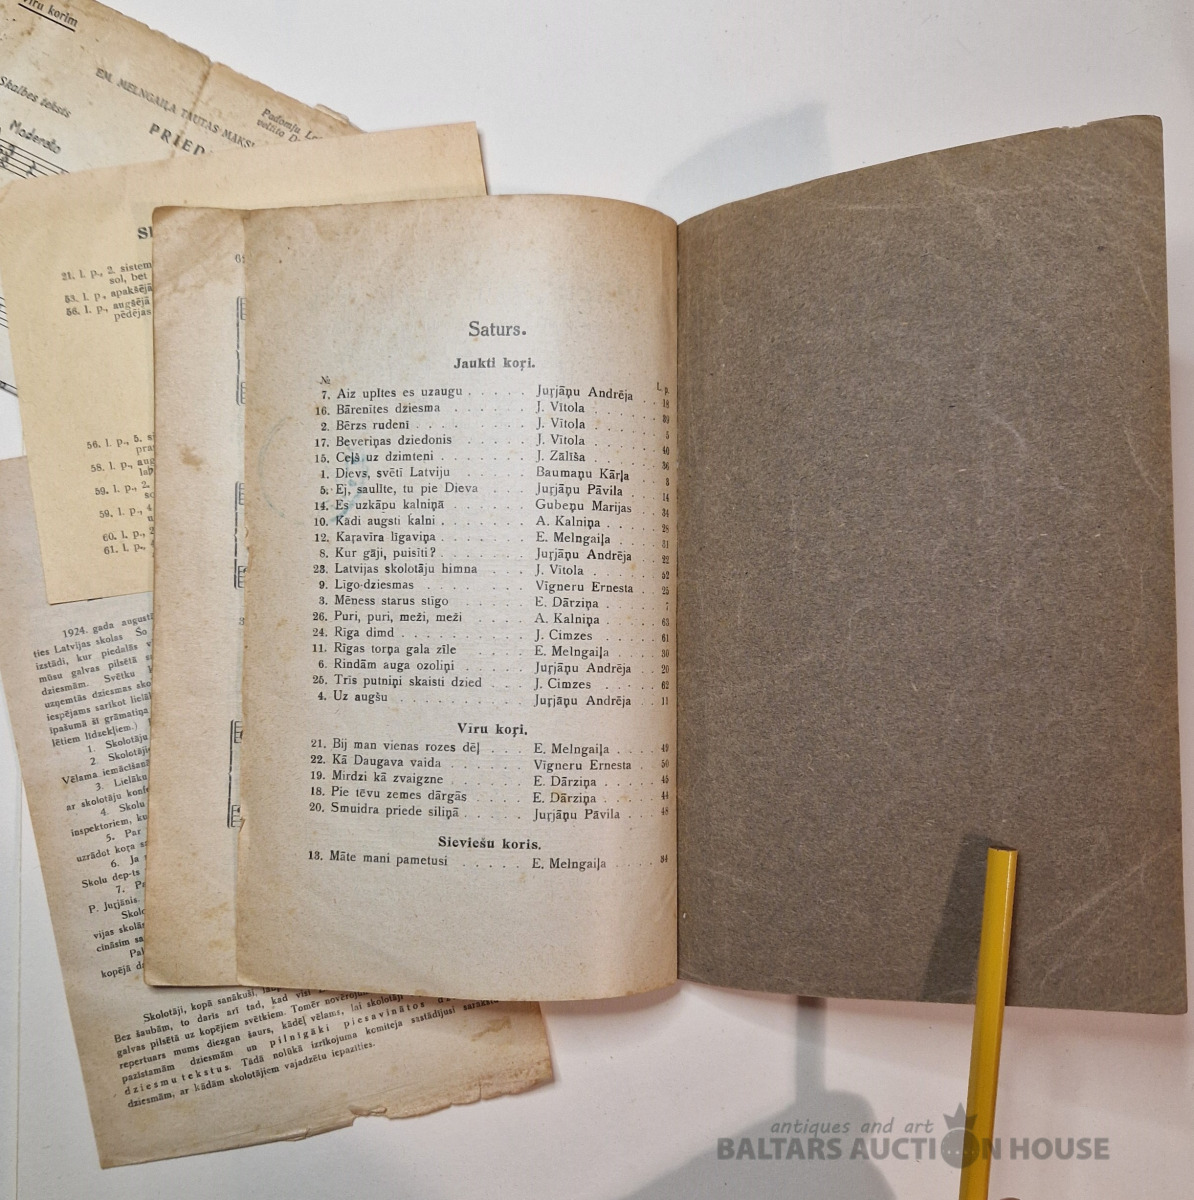 Vīru korim
Skalbes teksts
EM. MELNGAIĻA TAUTAS MAKSL
Moderato
21. l. p., 2. sistem
sol, bet
53. l. p., apakšējā
56. l. p., augšējā
pēdējās
56. l. p., 5. si
58. l. p., aug
59. l. p., 2.
59. l. p., 4.
60. l. p., 2
61. l. p.,
1924. gada augusti
ties Latvijas skolas Šo
izstādi, kur piedalās v
mūsu galvas pilsētā
dziesmām. Svētku
uzņemtās dziesmas sko
iespējams sarīkot lielāk
īpašumā šī grāmatiņa
lētiem līdzekļiem.)
1. Skolotāju
2. Skolotāji
Vēlama iemācīšan
3. Lielāku
ar skolotāju konf
4. Skolu
inspektoriem, ku
5. Par
uzrādot koŗa
6. Ja
Skolu dep-ts
7.
P. Jurjānis.
Skolo
vijas skolās
cināsim sa
kopējā
Skolotāji, kopā sanākuši,
Bez šaubām, to darīs arī tad, kad visi
galvas pilsētā uz kopējiem svētkiem. Tomēr novērojum
repertuars mums diezgan šaurs, kādēļ vēlams, lai skolotāji
pazīstamām dziesmām un pilnīgāki piesavinātos
dziesmu tekstus. Tādā nolūkā izrīkojuma komiteja sastādījusi sarakstu
dziesmām, ar kādām skolotājiem vajadzētu iepazīties.
Saturs.
Jaukti koŗi.
№ L. p.
7. Aiz upītes es uzaugu . . . . . Jurjāņu Andrēja . . 18
16. Bārenītes dziesma . . . . . . J. Vītola . . . . . . 39
2. Bērzs rudenī . . . . . . . . J. Vītola . . . . . . 5
17. Beveriņas dziedonis . . . . . J. Vītola . . . . . . 40
15. Ceļš uz dzimteni . . . . . . J. Zālīša . . . . . . 36
1. Dievs, svētī Latviju . . . . . Baumaņu Kārļa . . . 3
5. Ej, saulīte, tu pie Dieva . . . Jurjāņu Pāvila . . . 14
14. Es uzkāpu kalniņā . . . . . Gubeņu Marijas . . . 34
10. Kādi augsti kalni . . . . . . A. Kalniņa . . . . . 28
12. Kaŗavīra līgaviņa . . . . . . E. Melngaiļa . . . . 31
8. Kur gāji, puisīti? . . . . . . Jurjāņu Andrēja . . 22
23. Latvijas skolotāju himna . . . J. Vītola . . . . . . 52
9. Līgo-dziesmas . . . . . . . Vīgneru Ernesta . . 25
3. Mēness starus stīgo . . . . . E. Dārziņa . . . . . 7
26. Puri, puri, meži, meži . . . . A. Kalniņa . . . . . 63
24. Rīga dimd . . . . . . . . . J. Cimzes . . . . . . 61
11. Rīgas torņa gala zīle . . . . E. Melngaiļa . . . . 30
6. Rindām auga ozoliņi . . . . . Jurjāņu Andrēja . . 20
25. Trīs putniņi skaisti dzied . . . J. Cimzes . . . . . . 62
4. Uz augšu . . . . . . . . . Jurjāņu Andrēja . . 11
Vīru koŗi.
21. Bij man vienas rozes dēļ . . . E. Melngaiļa . . . . 49
22. Kā Daugava vaida . . . . . . Vīgneru Ernesta . . 50
19. Mirdzi kā zvaigzne . . . . . E. Dārziņa . . . . . 45
18. Pie tēvu zemes dārgās . . . . E. Dārziņa . . . . . 44
20. Smuidra priede siliņā . . . . Jurjāņu Pāvila . . . 48
Sieviešu koris.
13. Māte mani pametusi . . . . . E. Melngaiļa . . . . 34
antiques and art
BALTARS AUCTION HOUSE